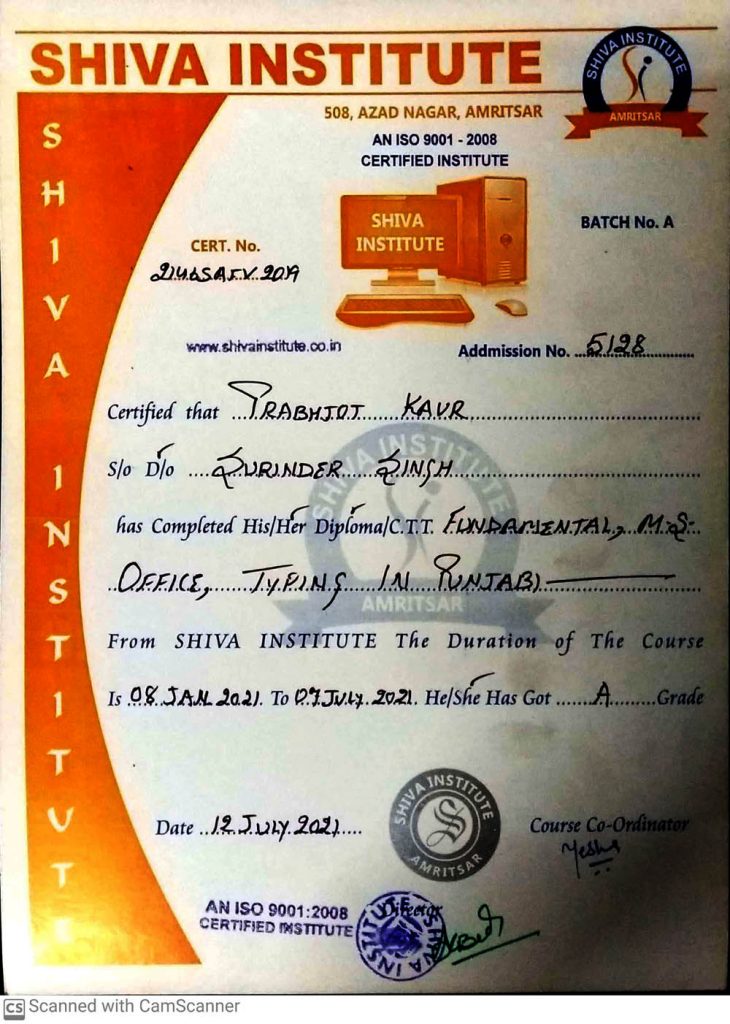 SHIVA INSTITUTE
SHIVA INSTITUTE
AMRITSAR
508, AZAD NAGAR, AMRITSAR
AN ISO 9001 - 2008
CERTIFIED INSTITUTE
SHIVA INSTITUTE
SHIVA
INSTITUTE
BATCH No. A
CERT. No.
www.shivainstitute.co.in
Addmission No. 5128
Certified that PRABHJOT KAUR
S/o D/o SURINDER SINGH
has Completed His/Her Diploma/C.T.T. FUNDAMENTAL, M.S-
OFFICE, TYPING IN PUNJABI
SHIVA INSTITUTE
AMRITSAR
From SHIVA INSTITUTE The Duration of The Course
Is 08 JAN 2021. To 07 JULY 2021. He/She Has Got A Grade
Date 12 JULY 2021
SHIVA INSTITUTE
S
AMRITSAR
Course Co-Ordinator
AN ISO 9001:2008
CERTIFIED INSTITUTE
Director
SHIVA INSTITUTE
CS Scanned with CamScanner